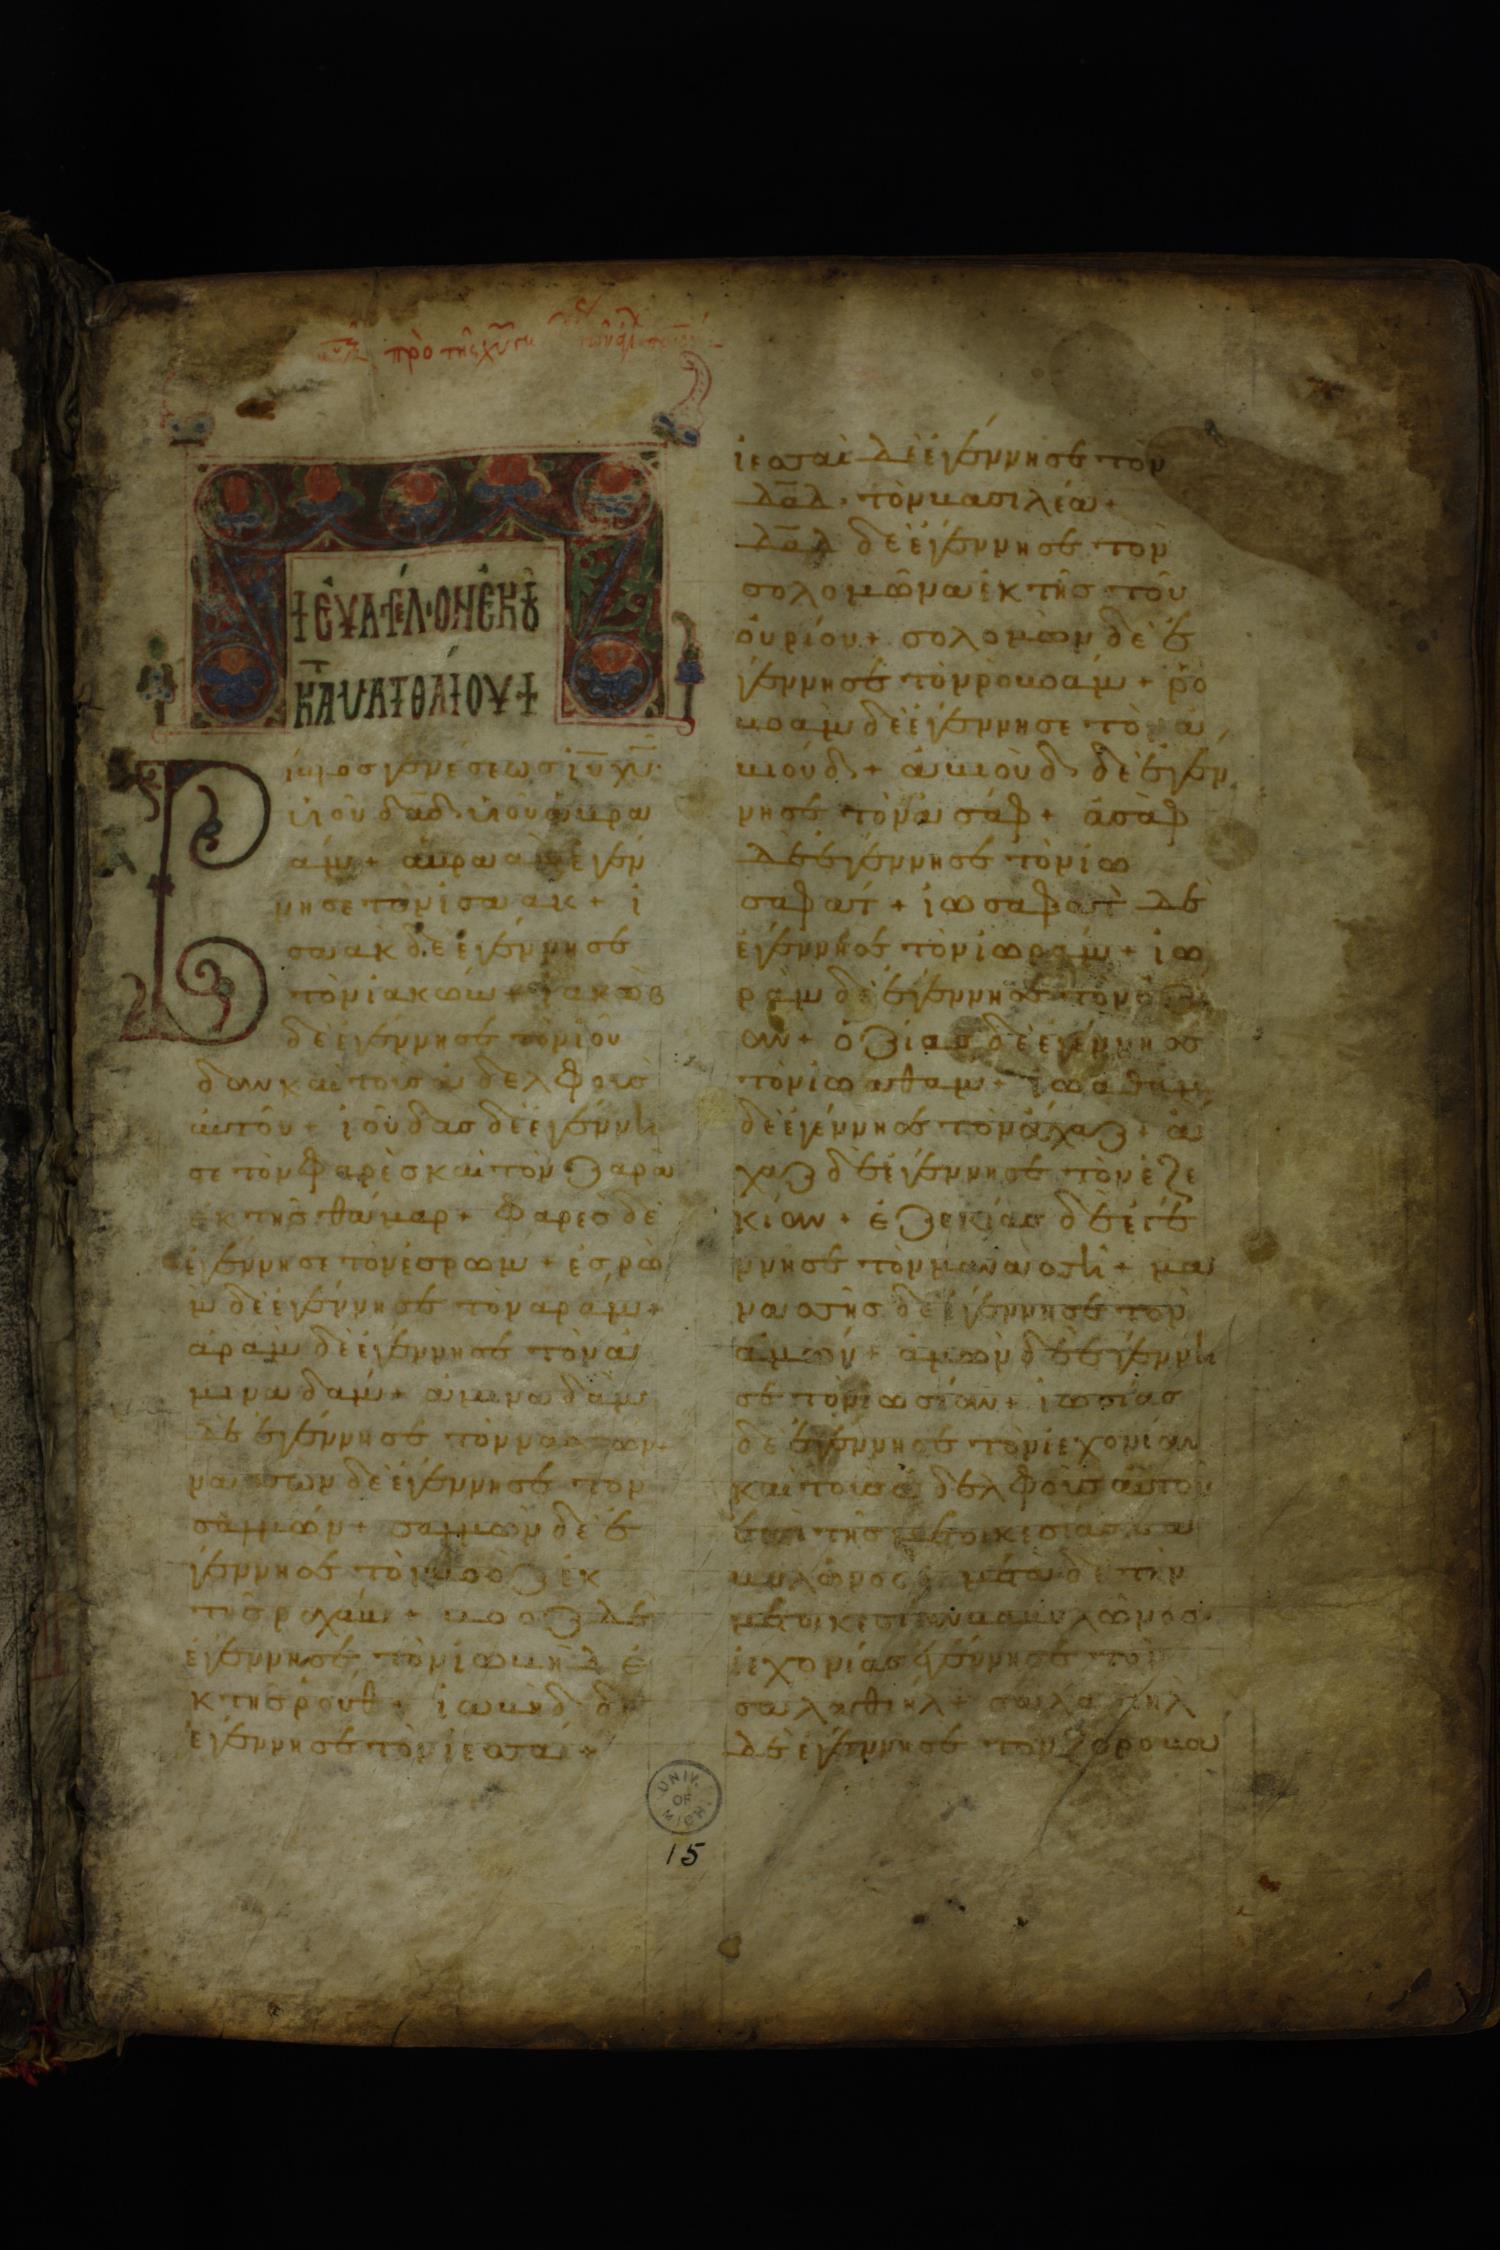 πρὸ τῆς χῦ
+ ἐυαγγέλιον ἐκ τοῦ
κατὰ ματθαίου +
Βίβλος γενέσεως ἰῦ χῦ·
υἱοῦ δαδ· υἱοῦ ἀβρα
άμ + ἀβραὰμ ἐγέν
νησε τὸν ἰσαακ + ἰ
σαακ δε ἐγέννησε
τὸν ἰακώβ + ἰακὼβ
δὲ ἐγέννησε τὸν ἰού
δαν καὶ τοὺσ ἀδελφοὺσ
ἀυτοῦ + ἰούδασ δὲ ἐγέννη
σε τὸν φαρὲσ καὶ τὸν ζαρὰ
ἐκ τῆσ θάμαρ + φαρεσ δὲ
ἐγέννησε τὸν ἐσρώμ + ἐσρὼ
μ δὲ ἐγέννησε τὸν αράμ +
ἀρὰμ δὲ ἐγέννησε τὸν ἀ
μιναδάμ + ἀμιναδὰμ
δὲ ἐγέννησε τὸν ναασσών +
ναασσὼν δὲ ἐγέννησε τον
σαλμών + σαλμὼν δὲ ἐ
γέννησε τὸν βοὸζ ἐκ
τῆσ ραχάμ + βοοζ δὲ
ἐγέννησε τὸν ἰωβὴδ ἐ
κ τησ ρούθ + ἰωβὴδ δὲ
ἐγέννησε τὸν ἰεσσαί +
ἰεσσαὶ δὲ ἐγέννησε τὸν
δᾱδ· τὸν βασιλέα +
δᾱδ δὲ ἐγέννησε τὸν
σολομῶνα ἐκ τῆσ τοῦ
ὀυρίου + σολομὼν δὲ ἐ
γέννησε τὸν ροβοάμ + ρο
βοὰμ δὲ ἐγέννησε τὸν ἀ
βιούδ + ἀβιοὺδ δὲ ἐγέν
νησε τὸν ασάφ + ἀσὰφ
δὲ ἐγέννησε τὸν ἰω
σαφατ + ἰωσαφὰτ δὲ
ἐγέννησε τὸν ἰωράμ + ἰω
ρὰμ δὲ ἐγέννησε τὸν ὀζί
αν + ὀζίασ δὲ ἐγέννησε
τὸν ἰωάθαμ + ἰωάθαμ
δὲ ἐγέννησε τὸν ἄχαζ + ἄ
χαζ δὲ ἐγέννησε τὸν ἐζε
κίαν + ἐζεκίασ δὲ ἐγέ
ννησε τὸν μανασσῆ + μα
νασσῆσ δὲ ἐγέννησε τὸν
ἀμών + ἀμὼν δὲ ἐγέννη
σε τὸν ἰωσίαν + ἰωσίασ
δὲ ἐγέννησε τὸν ἰεχονίαν
καὶ τοὺσ ἀδελφοὺσ ἀυτοῦ
ἐπὶ τῆσ μετοικεσίασ βα
βυλῶνοσ + μετὰ δὲ τὴν
μετοικεσίαν βαβυλῶνοσ·
ἰεχονίασ ἐγέννησε τὸν
σαλαθιήλ + σαλαθιὴλ
δὲ ἐγέννησε τὸν ζοροβα
UNIV. OF MICH.
15